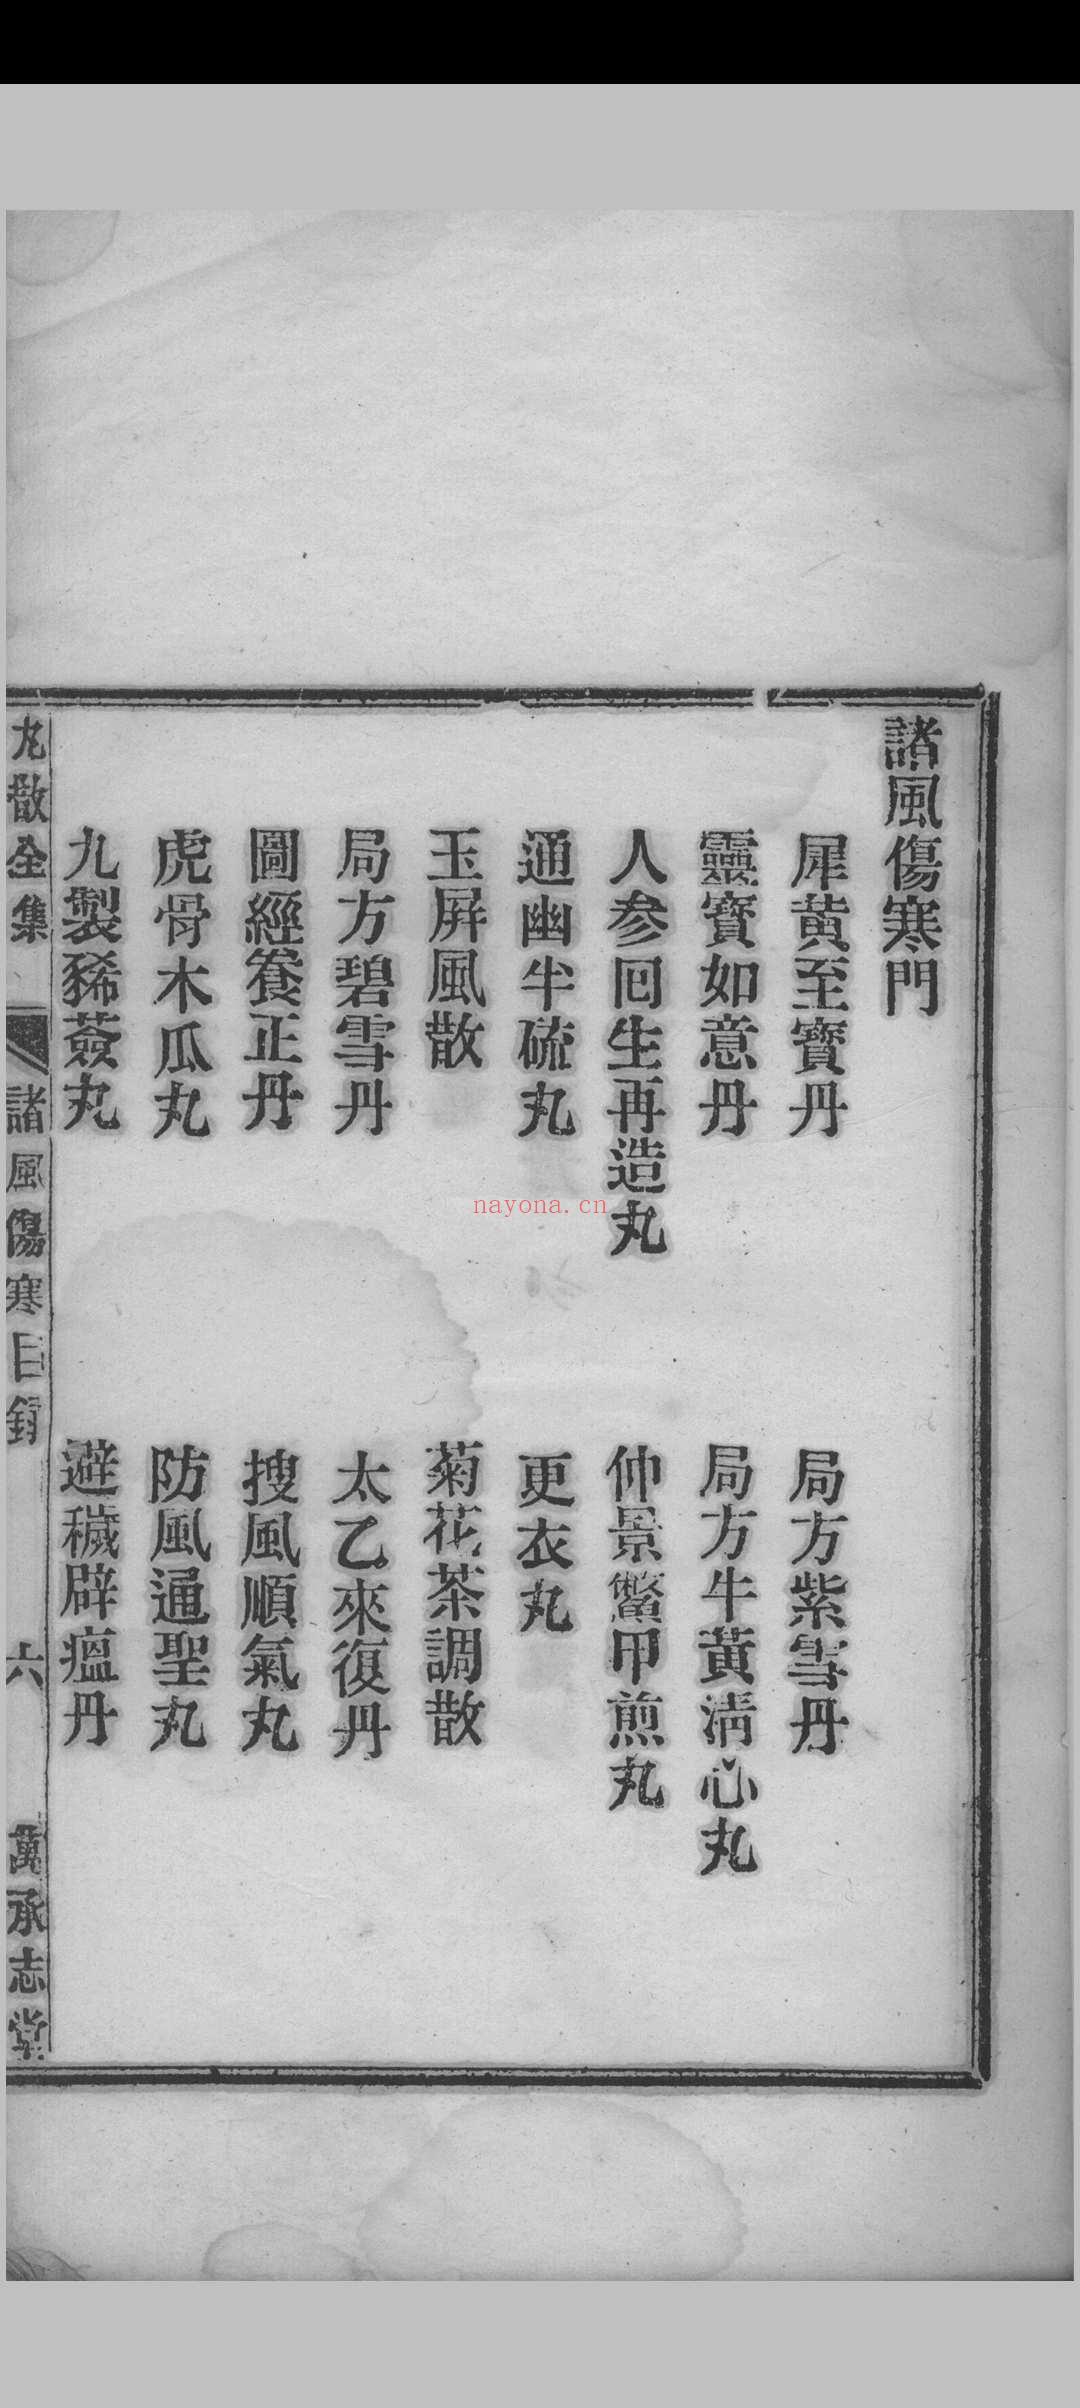 諸風傷寒門
犀黄至寳丹
局方紫雪丹
靈寳如意丹
局方牛黃清心丸
人參回生再造丸
仲景鱉甲煎丸
通幽半硫丸
更衣丸
玉屏風散
菊花茶調散
局方碧雪丹
太乙來復丹
圖經養正丹
搜風順氣丸
虎骨木瓜丸
防風通聖丸
九製豨薟丸
避穢辟瘟丹
丸散全集
諸風傷寒目錄
六
萬承志堂
nayona.cn